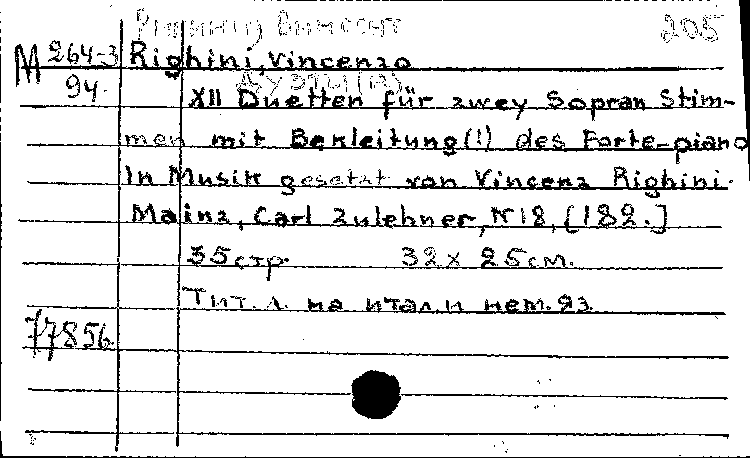 Ригини, Винсент 205
М 264-3 Righini, Vincenzo
94 Дуэты (12)
XII Duetten für zwey Sopran Stim-
men mit Benleitung(!) des Forte-piano
In Musik gesetzt von Vincenz Righini.
Mainz, Carl Zulehner, N 18, [182.]
35 стр. 32 x 25 см.
Тит. л. на итал. и нем. яз.
77856